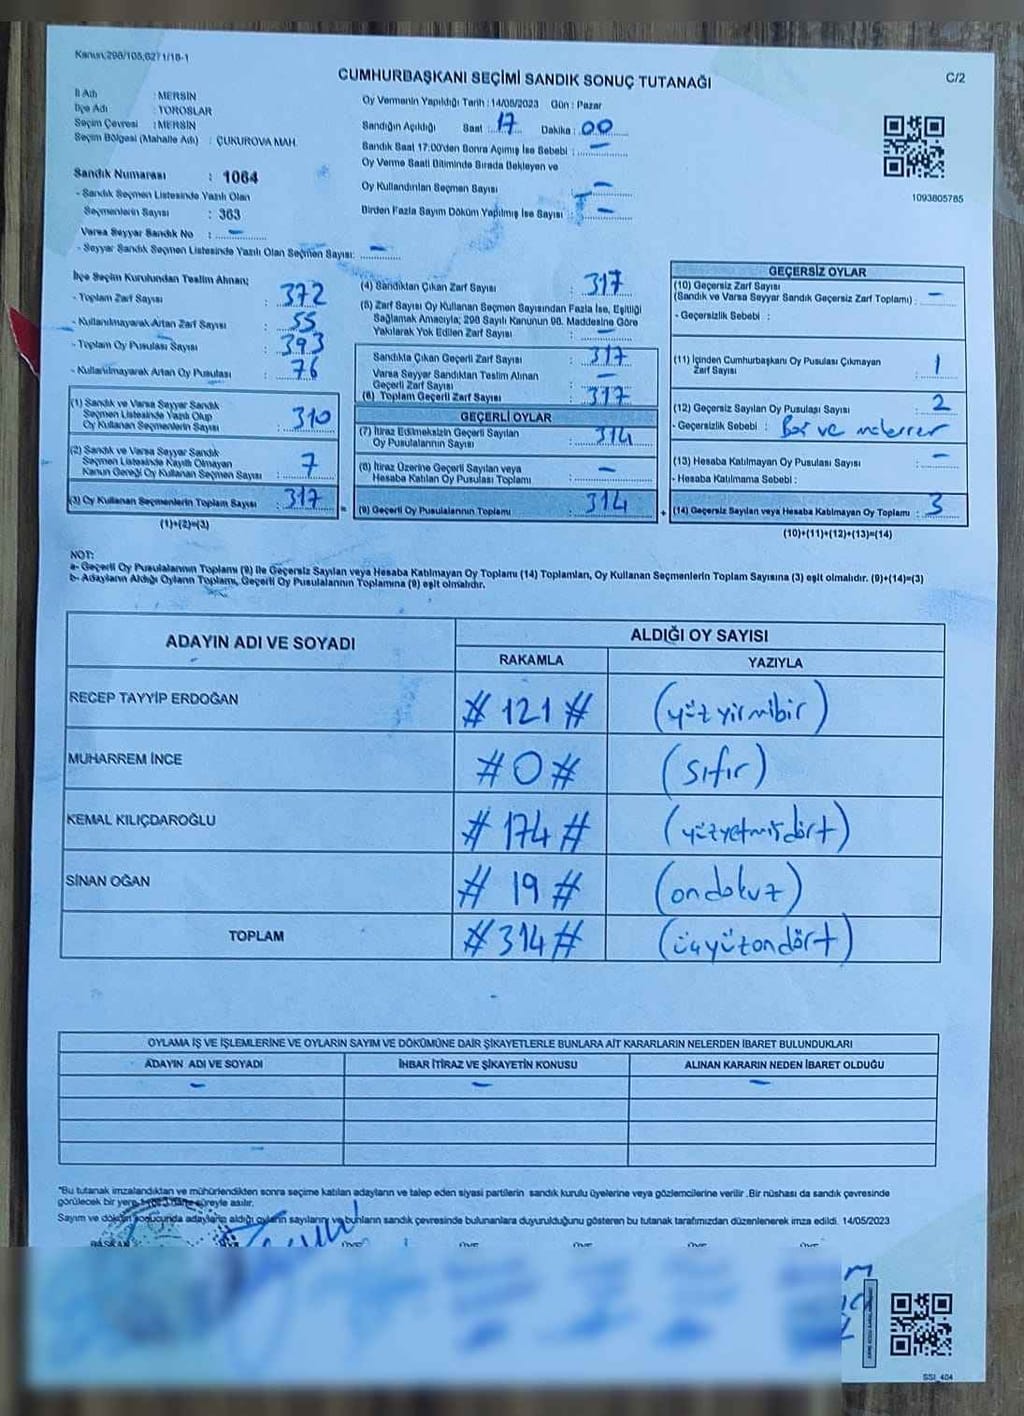 Kanun:298/105,6271/18-1
CUMHURBAŞKANI SEÇİMİ SANDIK SONUÇ TUTANAĞI
C/2
İl Adı : MERSİN
İlçe Adı : TOROSLAR
Seçim Çevresi : MERSİN
Seçim Bölgesi (Mahalle Adı) : ÇUKUROVA MAH.
Sandık Numarası : 1064
- Sandık Seçmen Listesinde Yazılı Olan
Seçmenlerin Sayısı : 363
Varsa Seyyar Sandık No : -
- Seyyar Sandık Seçmen Listesinde Yazılı Olan Seçmen Sayısı: -
Oy Vermenin Yapıldığı Tarih : 14/05/2023 Gün : Pazar
Sandığın Açıldığı Saat : 17 Dakika : 00
Sandık Saat 17:00'den Sonra Açılmış İse Sebebi : -
Oy Verme Saati Bitiminde Sırada Bekleyen ve
Oy Kullandırılan Seçmen Sayısı : -
Birden Fazla Sayım Döküm Yapılmış İse Sayısı : -
1093805785
İlçe Seçim Kurulundan Teslim Alınan;
- Toplam Zarf Sayısı : 372
- Kullanılmayarak Artan Zarf Sayısı : 55
- Toplam Oy Pusulası Sayısı : 393
- Kullanılmayarak Artan Oy Pusulası : 76
(1) Sandık ve Varsa Seyyar Sandık
Seçmen Listesinde Yazılı Olup
Oy Kullanan Seçmenlerin Sayısı : 310
(2) Sandık ve Varsa Seyyar Sandık
Seçmen Listesinde Kayıtlı Olmayan
Kanun Gereği Oy Kullanan Seçmen Sayısı : 7
(3) Oy Kullanan Seçmenlerin Toplam Sayısı : 317
(1)+(2)=(3)
=
(4) Sandıktan Çıkan Zarf Sayısı : 317
(5) Zarf Sayısı Oy Kullanan Seçmen Sayısından Fazla İse, Eşitliği
Sağlamak Amacıyla; 298 Sayılı Kanunun 98. Maddesine Göre
Yakılarak Yok Edilen Zarf Sayısı : -
Sandıkta Çıkan Geçerli Zarf Sayısı : 317
Varsa Seyyar Sandıktan Teslim Alınan
Geçerli Zarf Sayısı : -
(6) Toplam Geçerli Zarf Sayısı : 317
GEÇERLİ OYLAR
(7) İtiraz Edilmeksizin Geçerli Sayılan
Oy Pusulalarının Sayısı : 314
(8) İtiraz Üzerine Geçerli Sayılan veya
Hesaba Katılan Oy Pusulası Toplamı : -
(9) Geçerli Oy Pusulalarının Toplamı : 314
+
GEÇERSİZ OYLAR
(10) Geçersiz Zarf Sayısı
(Sandık ve Varsa Seyyar Sandık Geçersiz Zarf Toplamı) : -
- Geçersizlik Sebebi :
(11) İçinden Cumhurbaşkanı Oy Pusulası Çıkmayan
Zarf Sayısı : 1
(12) Geçersiz Sayılan Oy Pusulası Sayısı : 2
- Geçersizlik Sebebi : Boş ve
(13) Hesaba Katılmayan Oy Pusulası Sayısı : -
- Hesaba Katılmama Sebebi :
(14) Geçersiz Sayılan veya Hesaba Katılmayan Oy Toplamı : 3
(10)+(11)+(12)+(13)=(14)
NOT:
a- Geçerli Oy Pusulalarının Toplamı (9) ile Geçersiz Sayılan veya Hesaba Katılmayan Oy Toplamı (14) Toplamları, Oy Kullanan Seçmenlerin Toplam Sayısına (3) eşit olmalıdır. (9)+(14)=(3)
b- Adayların Aldığı Oyların Toplamı, Geçerli Oy Pusulalarının Toplamına (9) eşit olmalıdır.
ADAYIN ADI VE SOYADI
ALDIĞI OY SAYISI
RAKAMLA YAZIYLA
RECEP TAYYİP ERDOĞAN #121# (yüzyirmibir)
MUHARREM İNCE #0# (sıfır)
KEMAL KILIÇDAROĞLU #174# (yüzyetmişdört)
SİNAN OĞAN #19# (ondokuz)
TOPLAM #314# (üçyüzondört)
OYLAMA İŞ VE İŞLEMLERİNE VE OYLARIN SAYIM VE DÖKÜMÜNE DAİR ŞİKAYETLERLE BUNLARA AİT KARARLARIN NELERDEN İBARET BULUNDUKLARI
ADAYIN ADI VE SOYADI İHBAR İTİRAZ VE ŞİKAYETİN KONUSU ALINAN KARARIN NEDEN İBARET OLDUĞU
- - -
"Bu tutanak imzalandıktan ve mühürlendikten sonra seçime katılan adayların ve talep eden siyasi partilerin sandık kurulu üyelerine veya gözlemcilerine verilir. Bir nüshası da sandık çevresinde
görülecek bir yere süreyle asılır.
Sayım ve döküm sonucunda adayların aldığı oyların sayılarını ve bunların sandık çevresinde bulunanlara duyurulduğunu gösteren bu tutanak tarafımızdan düzenlenerek imza edildi. 14/05/2023
SSI_404